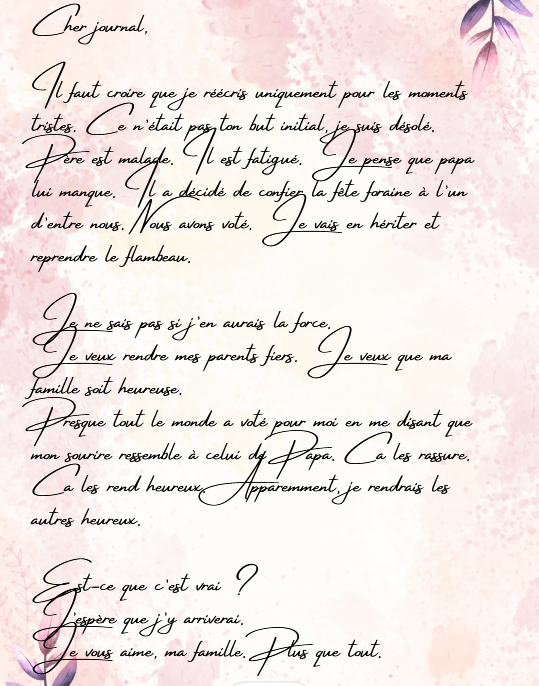 Cher journal,
Il faut croire que je réécris uniquement pour les moments
tristes. Ce n'était pas ton but initial, je suis désolé.
Père est malade. Il est fatigué. Je pense que papa
lui manque. Il a décidé de confier la fête foraine à l'un
d'entre nous. Nous avons voté. Je vais en hériter et
reprendre le flambeau.
Je ne sais pas si j'en aurais la force.
Je veux rendre mes parents fiers. Je veux que ma
famille soit heureuse.
Presque tout le monde a voté pour moi en me disant que
mon sourire ressemble à celui de Papa. Ca les rassure.
Ca les rend heureux. Apparemment, je rendrais les
autres heureux.
Est-ce que c'est vrai ?
J'espère que j'y arriverai.
Je vous aime, ma famille. Plus que tout.